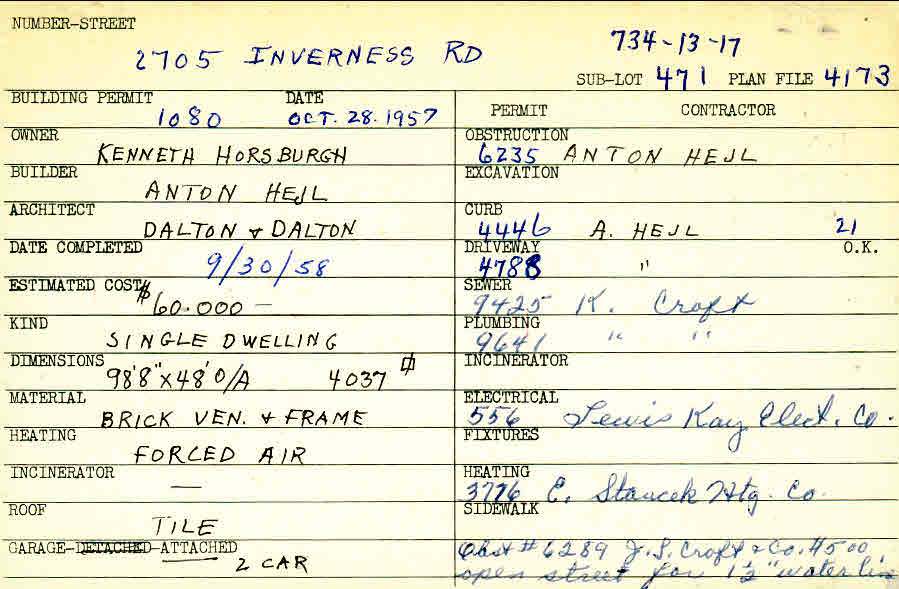 NUMBER-STREET
2705 INVERNESS RD
734-13-17
SUB-LOT 471 PLAN FILE 4173
BUILDING PERMIT DATE
1080 OCT. 28. 1957
OWNER
KENNETH HORSBURGH
BUILDER
ANTON HEJL
ARCHITECT
DALTON & DALTON
DATE COMPLETED
9/30/58
ESTIMATED COST
$60.000 —
KIND
SINGLE DWELLING
DIMENSIONS
98'8" x 48' O/A 4037
MATERIAL
BRICK VEN. & FRAME
HEATING
FORCED AIR
INCINERATOR
—
ROOF
TILE
GARAGE-DETACHED-ATTACHED
2 CAR
PERMIT CONTRACTOR
OBSTRUCTION
6235 ANTON HEJL
EXCAVATION
CURB
4446 A. HEJL 21
DRIVEWAY O.K.
4788 "
SEWER
9425 K. Croft
PLUMBING
9641 " "
INCINERATOR
ELECTRICAL
556 Lewis Kay Elect. Co.
FIXTURES
HEATING
3776 E. Stancek Htg. Co.
SIDEWALK
Obst # 6289 J.S. Croft & Co. $500
open street for 1½" water line